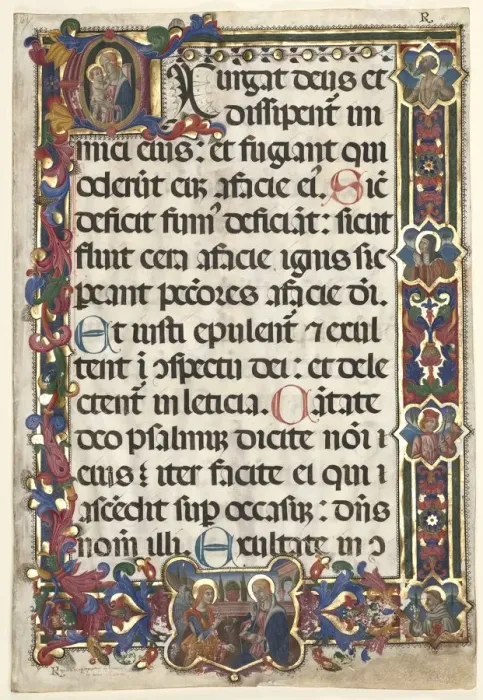 R.
Exurgat deus et
dissipent᷑ ini
mici eius: et fugiant qui
oderūt eū afacie ei᷒. Sic̄
deficit fum᷒ deficiāt: sicut
fluit cera afacie ignis sic
pereant pcc̄ores afacie dī.
Et iusti epulent᷑ ⁊ exul
tent ī ɔspectu dei: et dele
ctent᷑ in leticia. Cātate
deo psalmuꝫ dicite nōi ı
eius: iter facite ei qui ı
ascēdit sup̱ occasuꝫ: dn̄s
nom̄ illi. Exultate in ɔ
R